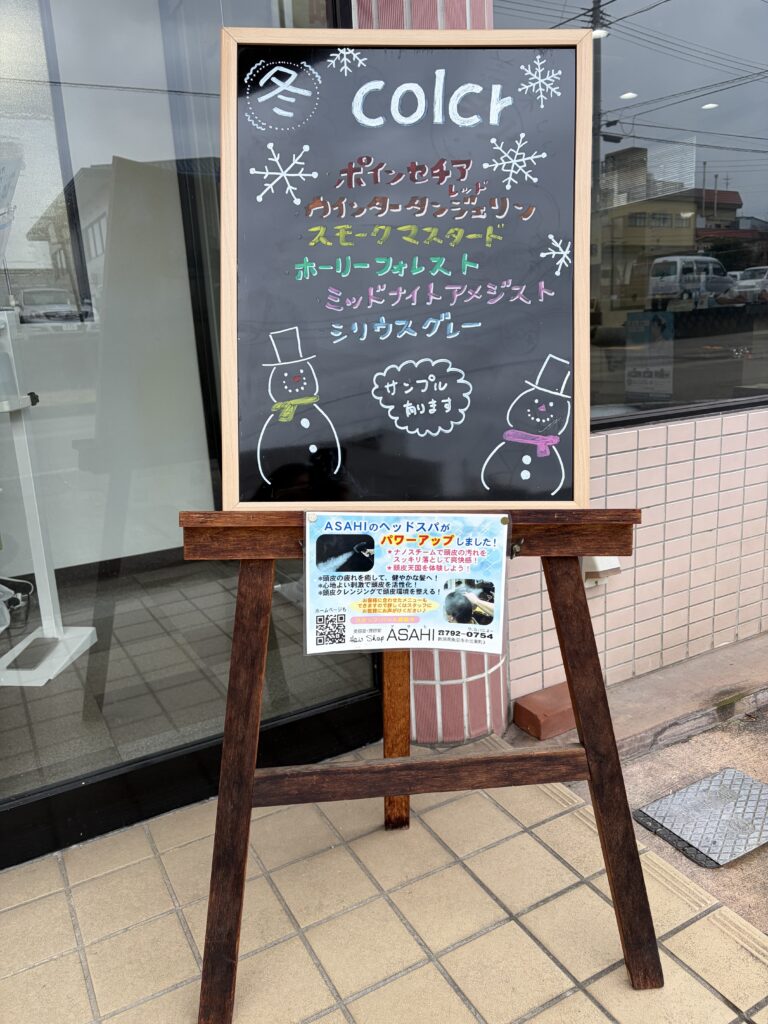 冬 colcr
ポインセチア
レッド
ウインタータンジェリン
スモークマスタード
ホーリーフォレスト
ミッドナイトアメジスト
シリウスグレー
サンプル
有ります
ASAHIのヘッドスパが
パワーアップしました!
★ナノスチームで頭皮の汚れを
スッキリ落として爽快感!
★頭皮天国を体験しよう!
*頭皮の疲れを癒して、健やかな髪へ!
*心地よい刺激で頭皮を活性化!
*頭皮クレンジングで頭皮環境を整える!
お客様に合わせたメニューも
できますので詳しくはスタッフに
お気軽にお声がけください♪
ホームページも
Hair Shop ASAHI
☎792-0754